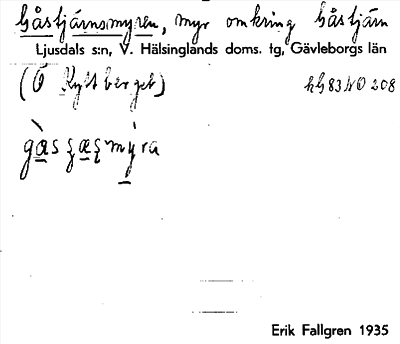 Gåstjärnsmyren, myr omkring Gåstjärn
Ljusdals s:n, V. Hälsinglands doms. tg, Gävleborgs län
(Ö Ryttberget) hG 83 NO 208
Erik Fallgren 1935